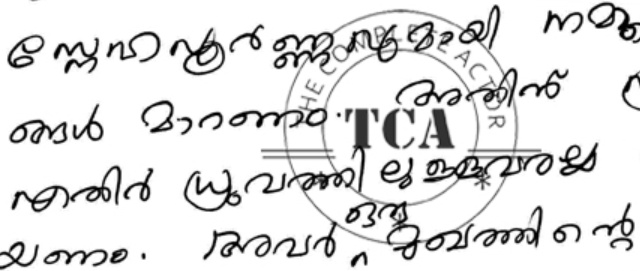 സ്നേഹപൂർണ്ണവുമായി നമ്മ
ങ്ങൾ മാറണം. അതിന്
എതിർ ധ്രുവത്തിലുള്ളവരല്ല
യണം. അവർ ഒരു മുഖത്തിന്റെ
THE COMPLETE ACTOR
TCA